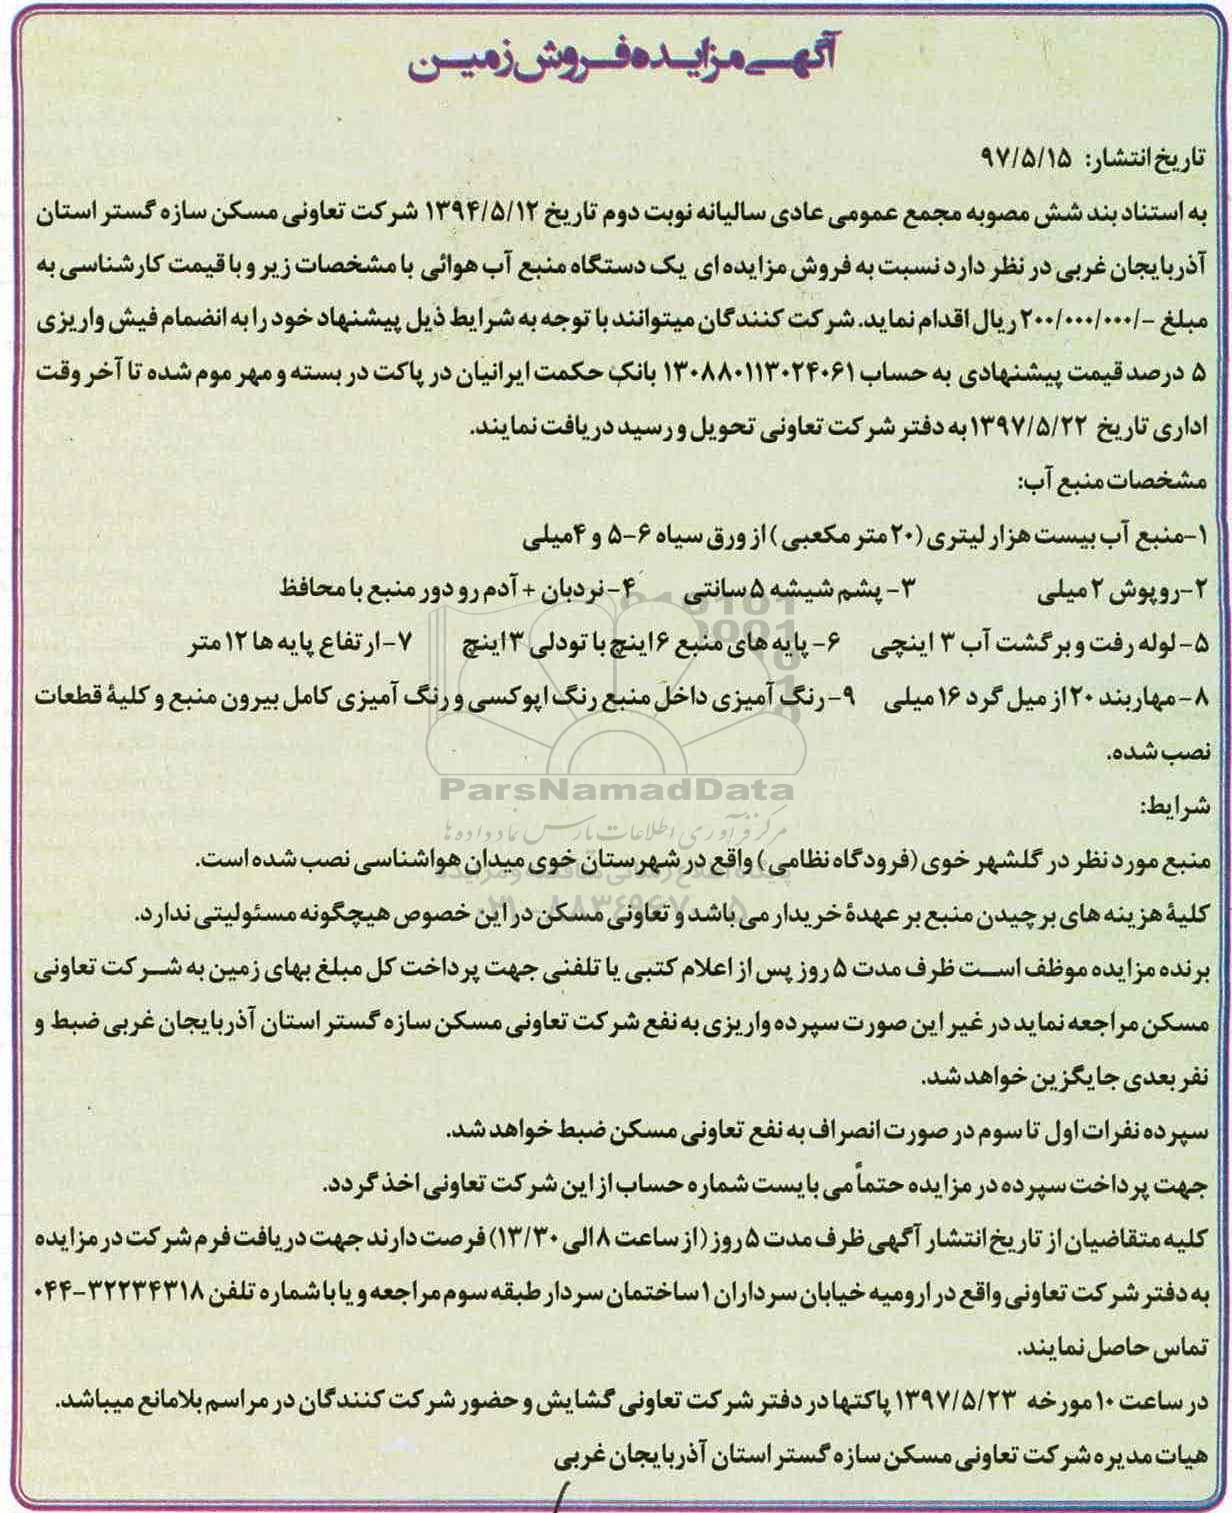 آگهی مزایده فروش زمین
تاریخ انتشار: ۹۷/۵/۱۵
به استناد بند شش مصوبه مجمع عمومی عادی سالیانه نوبت دوم تاریخ ۱۳۹۴/۵/۱۲ شرکت تعاونی مسکن سازه گستر استان
آذربایجان غربی در نظر دارد نسبت به فروش مزایده ای یک دستگاه منبع آب هوائی با مشخصات زیر و با قیمت کارشناسی به
مبلغ -/۲۰۰/۰۰۰/۰۰۰ ریال اقدام نماید. شرکت کنندگان میتوانند با توجه به شرایط ذیل پیشنهاد خود را به انضمام فیش واریزی
۵ درصد قیمت پیشنهادی به حساب ۱۳۰۸۸۰۱۱۳۰۲۴۰۶۱ بانک حکمت ایرانیان در پاکت در بسته و مهر موم شده تا آخر وقت
اداری تاریخ ۱۳۹۷/۵/۲۲ به دفتر شرکت تعاونی تحویل و رسید دریافت نمایند.
مشخصات منبع آب:
۱-منبع آب بیست هزار لیتری (۲۰ متر مکعبی) از ورق سیاه ۶-۵ و ۴میلی
۲-روپوش ۲ میلی ۳- پشم شیشه ۵ سانتی ۴- نردبان + آدم رو دور منبع با محافظ
۵- لوله رفت و برگشت آب ۳ اینچی ۶- پایه های منبع ۶ اینچ با تودلی ۳ اینچ ۷-ارتفاع پایه ها ۱۲ متر
۸- مهاربند ۲۰ از میل گرد ۱۶ میلی ۹- رنگ آمیزی داخل منبع رنگ اپوکسی و رنگ آمیزی کامل بیرون منبع و کلیۀ قطعات
نصب شده.
ParsNamadData
شرایط:
مرکز فرآوری اطلاعات پارس نماد داده ها
منبع مورد نظر در گلشهر خوی (فرودگاه نظامی) واقع در شهرستان خوی میدان هواشناسی نصب شده است.
کلیۀ هزینه های برچیدن منبع بر عهدۀ خریدار می باشد و تعاونی مسکن در این خصوص هیچگونه مسئولیتی ندارد.
برنده مزایده موظف است ظرف مدت ۵ روز پس از اعلام کتبی یا تلفنی جهت پرداخت کل مبلغ بهای زمین به شرکت تعاونی
مسکن مراجعه نماید در غیر این صورت سپرده واریزی به نفع شرکت تعاونی مسکن سازه گستر استان آذربایجان غربی ضبط و
نفر بعدی جایگزین خواهد شد.
سپرده نفرات اول تا سوم در صورت انصراف به نفع تعاونی مسکن ضبط خواهد شد.
جهت پرداخت سپرده در مزایده حتماً می بایست شماره حساب از این شرکت تعاونی اخذ گردد.
کلیه متقاضیان از تاریخ انتشار آگهی ظرف مدت ۵ روز (از ساعت ۸ الی ۱۳/۳۰) فرصت دارند جهت دریافت فرم شرکت در مزایده
به دفتر شرکت تعاونی واقع در ارومیه خیابان سرداران ۱ ساختمان سردار طبقه سوم مراجعه و یا با شماره تلفن ۳۲۲۳۴۳۱۸-۰۴۴
تماس حاصل نمایند.
در ساعت ۱۰ مورخه ۱۳۹۷/۵/۲۳ پاکتها در دفتر شرکت تعاونی گشایش و حضور شرکت کنندگان در مراسم بلامانع میباشد.
هیات مدیره شرکت تعاونی مسکن سازه گستر استان آذربایجان غربی